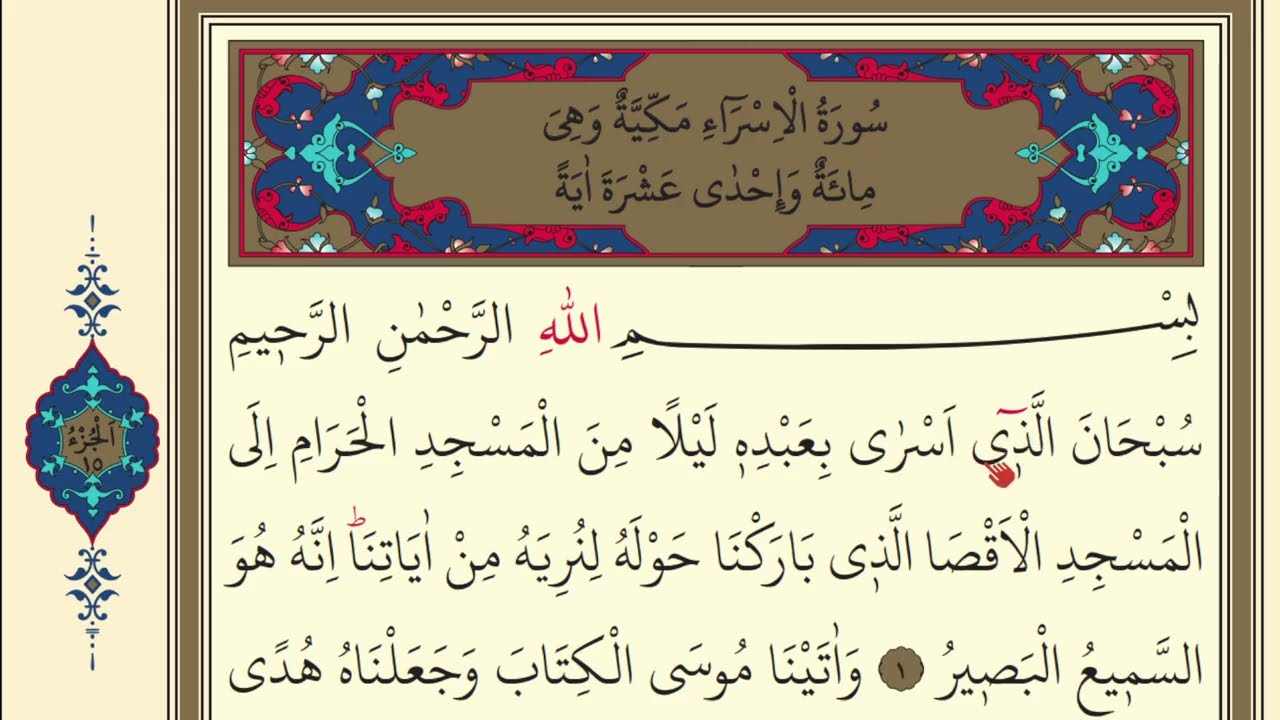 سُورَةُ الْاِسْرَٓاءِ مَكِّيَّةٌ وَهِىَ
مِائَةٌ وَاِحْدٰى عَشْرَةَ اٰيَةً
بِسْمِ اللّٰهِ الرَّحْمٰنِ الرَّحٖيمِ
سُبْحَانَ الَّذٖٓى اَسْرٰى بِعَبْدِهٖ لَيْلًا مِنَ الْمَسْجِدِ الْحَرَامِ اِلَى
الْمَسْجِدِ الْاَقْصَا الَّذٖى بَارَكْنَا حَوْلَهُ لِنُرِيَهُ مِنْ اٰيَاتِنَاؕ اِنَّهُ هُوَ
السَّمٖيعُ الْبَصٖيرُ ١ وَاٰتَيْنَا مُوسَى الْكِتَابَ وَجَعَلْنَاهُ هُدًى
اَلْجُزْءُ
١٥